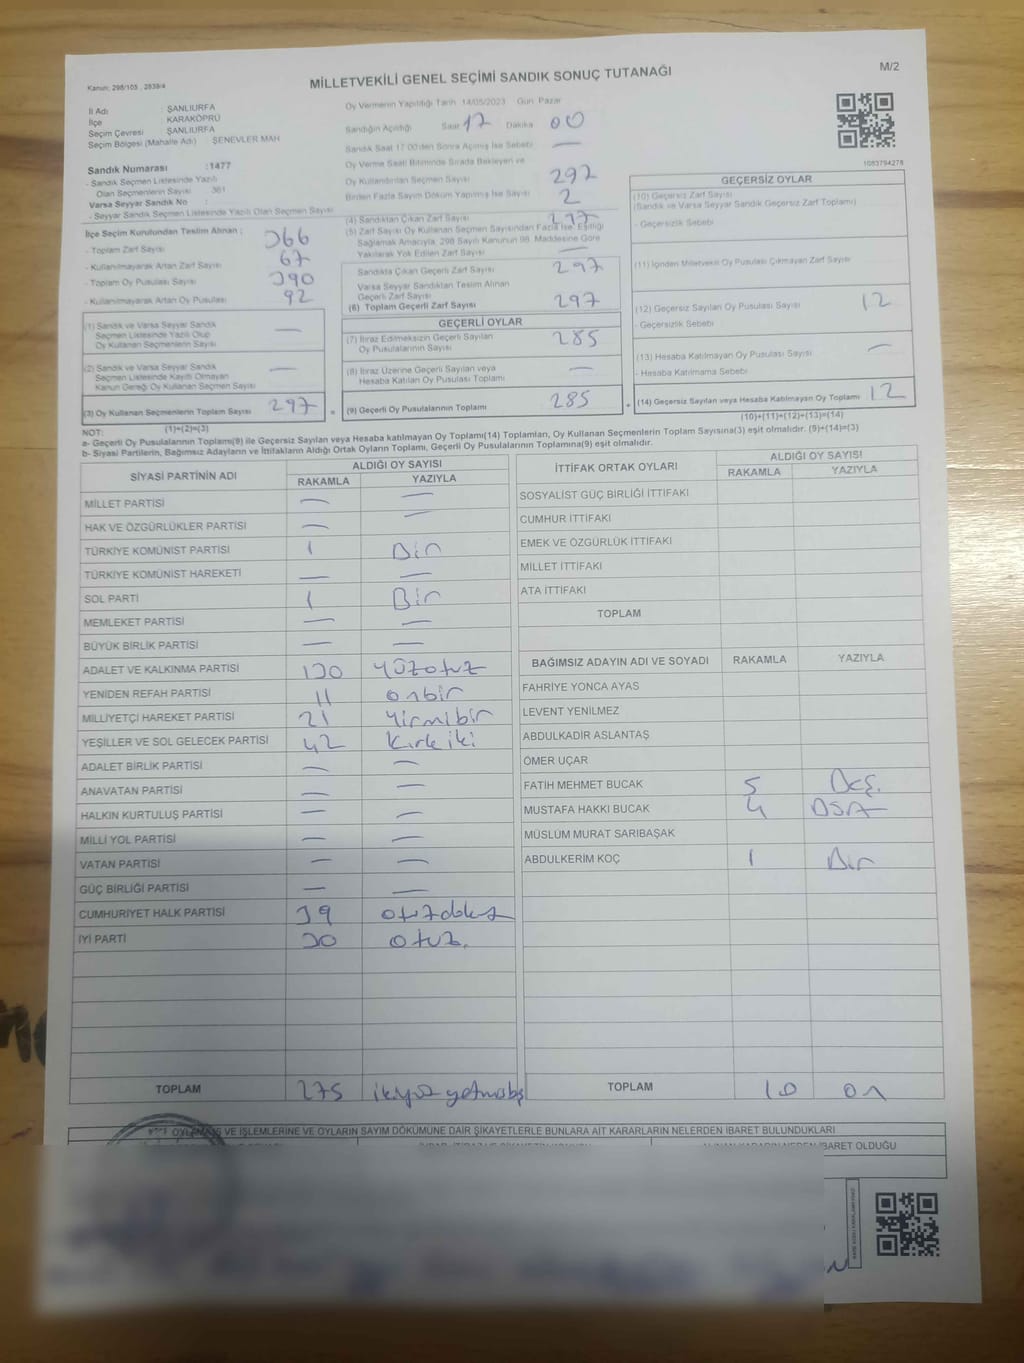 Kanun: 298/105 , 2839/4
MİLLETVEKİLİ GENEL SEÇİMİ SANDIK SONUÇ TUTANAĞI
M/2
İl Adı : ŞANLIURFA
İlçe : KARAKÖPRÜ
Seçim Çevresi : ŞANLIURFA
Seçim Bölgesi (Mahalle Adı) : ŞENEVLER MAH
Sandık Numarası :1477
- Sandık Seçmen Listesinde Yazılı
Olan Seçmenlerin Sayısı : 361
Varsa Seyyar Sandık No :
- Seyyar Sandık Seçmen Listesinde Yazılı Olan Seçmen Sayısı :
İlçe Seçim Kurulundan Teslim Alınan ;
- Toplam Zarf Sayısı 366
- Kullanılmayarak Artan Zarf Sayısı 67
- Toplam Oy Pusulası Sayısı 390
- Kullanılmayarak Artan Oy Pusulası 92
(1) Sandık ve Varsa Seyyar Sandık
Seçmen Listesinde Yazılı Olup
Oy Kullanan Seçmenlerin Sayısı —
(2) Sandık ve Varsa Seyyar Sandık
Seçmen Listesinde Kayıtlı Olmayan
Kanun Gereği Oy Kullanan Seçmen Sayısı —
(3) Oy Kullanan Seçmenlerin Toplam Sayısı 297
(1)+(2)=(3)
Oy Vermenin Yapıldığı Tarih 14/05/2023 Gün: Pazar
Sandığın Açıldığı Saat 17 Dakika 00
Sandık Saat 17.00'den Sonra Açılmış İse Sebebi —
Oy Verme Saati Bitiminde Sırada Bekleyen ve
Oy Kullandırılan Seçmen Sayısı 297
Birden Fazla Sayım Döküm Yapılmış İse Sayısı 2
(4) Sandıktan Çıkan Zarf Sayısı 297
(5) Zarf Sayısı Oy Kullanan Seçmen Sayısından Fazla İse, Eşitliği
Sağlamak Amacıyla, 298 Sayılı Kanunun 98. Maddesine Göre
Yakılarak Yok Edilen Zarf Sayısı —
Sandıkta Çıkan Geçerli Zarf Sayısı 297
Varsa Seyyar Sandıktan Teslim Alınan
Geçerli Zarf Sayısı
(6) Toplam Geçerli Zarf Sayısı 297
GEÇERLİ OYLAR
(7) İtiraz Edilmeksizin Geçerli Sayılan
Oy Pusulalarının Sayısı 285
(8) İtiraz Üzerine Geçerli Sayılan veya
Hesaba Katılan Oy Pusulası Toplamı —
(9) Geçerli Oy Pusulalarının Toplamı 285
1083794278
GEÇERSİZ OYLAR
(10) Geçersiz Zarf Sayısı
(Sandık ve Varsa Seyyar Sandık Geçersiz Zarf Toplamı)
- Geçersizlik Sebebi
(11) İçinden Milletvekili Oy Pusulası Çıkmayan Zarf Sayısı
(12) Geçersiz Sayılan Oy Pusulası Sayısı 12
- Geçersizlik Sebebi
(13) Hesaba Katılmayan Oy Pusulası Sayısı —
- Hesaba Katılmama Sebebi
(14) Geçersiz Sayılan veya Hesaba Katılmayan Oy Toplamı 12
(10)+(11)+(12)+(13)=(14)
NOT:
a- Geçerli Oy Pusulalarının Toplamı(9) ile Geçersiz Sayılan veya Hesaba katılmayan Oy Toplamı(14) Toplamları, Oy Kullanan Seçmenlerin Toplam Sayısına(3) eşit olmalıdır. (9)+(14)=(3)
b- Siyasi Partilerin, Bağımsız Adayların ve İttifakların Aldığı Ortak Oyların Toplamı, Geçerli Oy Pusulalarının Toplamına(9) eşit olmalıdır.
SİYASİ PARTİNİN ADI ALDIĞI OY SAYISI
RAKAMLA YAZIYLA
MİLLET PARTİSİ — —
HAK VE ÖZGÜRLÜKLER PARTİSİ — —
TÜRKİYE KOMÜNİST PARTİSİ 1 Bir
TÜRKİYE KOMÜNİST HAREKETİ — —
SOL PARTİ 1 Bir
MEMLEKET PARTİSİ — —
BÜYÜK BİRLİK PARTİSİ — —
ADALET VE KALKINMA PARTİSİ 130 Yüzotuz
YENİDEN REFAH PARTİSİ 11 onbir
MİLLİYETÇİ HAREKET PARTİSİ 21 Yirmibir
YEŞİLLER VE SOL GELECEK PARTİSİ 42 Kırkiki
ADALET BİRLİK PARTİSİ — —
ANAVATAN PARTİSİ — —
HALKIN KURTULUŞ PARTİSİ — —
MİLLİ YOL PARTİSİ — —
VATAN PARTİSİ — —
GÜÇ BİRLİĞİ PARTİSİ — —
CUMHURİYET HALK PARTİSİ 39 otuzdokuz
İYİ PARTİ 30 otuz.
TOPLAM 275 ikiyüz yetmişbeş
İTTİFAK ORTAK OYLARI ALDIĞI OY SAYISI
RAKAMLA YAZIYLA
SOSYALİST GÜÇ BİRLİĞİ İTTİFAKI
CUMHUR İTTİFAKI
EMEK VE ÖZGÜRLÜK İTTİFAKI
MİLLET İTTİFAKI
ATA İTTİFAKI
TOPLAM
BAĞIMSIZ ADAYIN ADI VE SOYADI RAKAMLA YAZIYLA
FAHRİYE YONCA AYAS
LEVENT YENİLMEZ
ABDULKADİR ASLANTAŞ
ÖMER UÇAR
FATİH MEHMET BUCAK 5 Beş.
MUSTAFA HAKKI BUCAK 4 Dört
MÜSLÜM MURAT SARIBAŞAK
ABDULKERİM KOÇ 1 Bir
TOPLAM 10 on
OYLAMA İŞ VE İŞLEMLERİNE VE OYLARIN SAYIM DÖKÜMÜNE DAİR ŞİKAYETLERLE BUNLARA AİT KARARLARIN NELERDEN İBARET BULUNDUKLARI
İBARET OLDUĞU